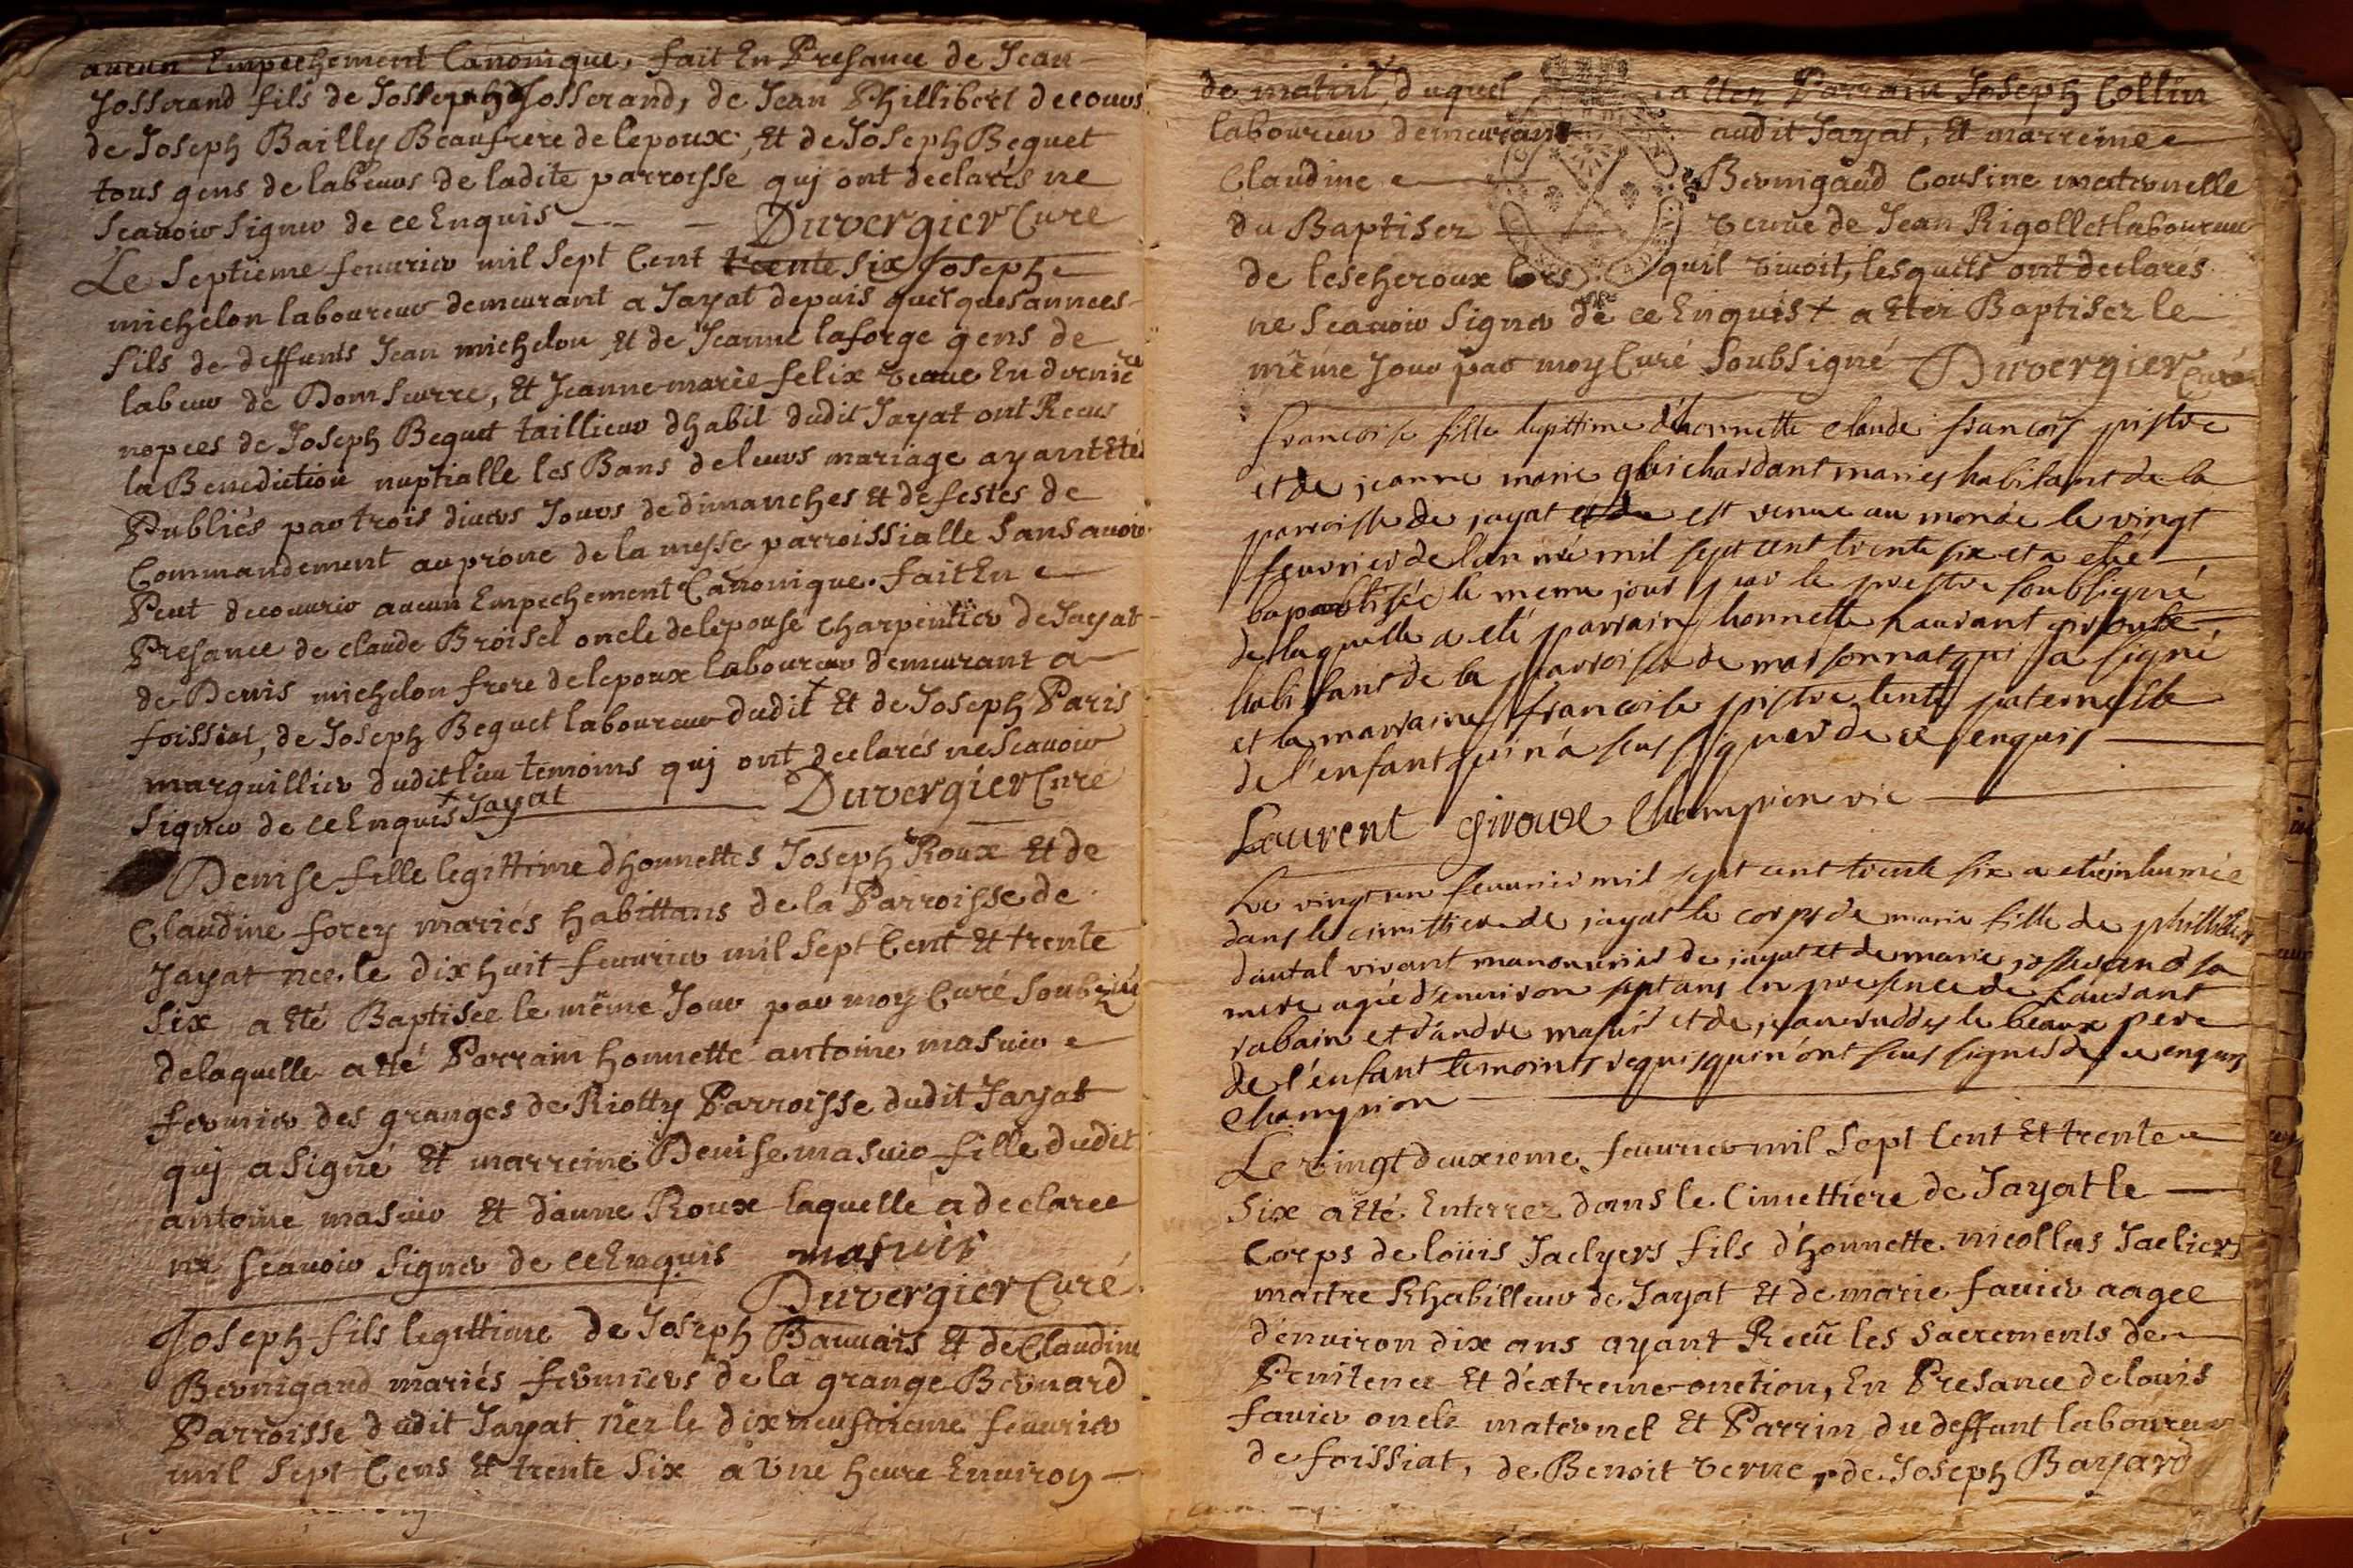 aucun Empechement Canonique, fait En Presance de Jean
Josserand fils de Josseph Josserand, de Jean Phillibert decouvs
de Joseph Bailly Beaufrere de lepoux, Et de Joseph Beguet
tous gens de labeuvs de ladite parroisse quj ont declarés ne
Scauoir Signer de ce Enquis Duvergier Curé
Le Septieme feuurier mil Sept Cent trente six Joseph
michelon laboureur demeurant a Jayat depuis quelques annees
fils de deffunts Jean michelon Et de Jeanne laforge gens de
labeur de Domseurre, Et Jeanne marie felix veaue En dernie re
nopces de Joseph Beguet taillieur dhabit dudit Jayat ont Receus
la Benediction nuptialle les Bans de leurs mariage ayant Eté
Publiés par trois divers Jours de dimanches Et de festes de
Commandement au prone de la messe parroissialle Sans auoir
Peut decouurir aucun Empechement Canonique. fait En
Presance de claude Broisel oncle de lepouse charpentier de Jayat
de Denis michelon frere de lepoux laboureur demeurant a
foissiat, de Joseph Beguet laboureur dudit + Et de Joseph Paris
marguillier dudit lieu temoins quj ont declarés ne Scauoir
Signer de ce Enquis + Jayat Duvergier Curé
Denise fille legittime dhonnettes Joseph Roux Et de
Claudine forey mariés habittans de la Parroisse de
Jayat nee le dix huit feuurier mil Sept Cent Et trente
Six a Eté Baptisee le même Jour par moy Curé Soubz
delaquelle a été Parrain honnette antoine masuir
fermier des granges de Riotty Parroisse dudit Jayat
quj a Signé Et marreine Denise masuir fille dudit
antoine masuir Et danne Roux laquelle a declaree
ne scauoir Signer de ce Enquis masuir
Duvergier Curé
Joseph fils legittime de Joseph Bauuais Et de Claudine
Bernigaud mariés fermiers de la grange Bernard
Parroisse dudit Jayat nez le dix neufuieme feuurier
mil Sept Cens Et trente Six a Une heure Environ
de matin, duquel a Eter Parrain Joseph Collin
laboureur demeurant audit Jayat, Et marreine
Claudine Bernigaud Cousine maternelle
du Baptisez veuue de Jean Rigollet laboureur
de lescheroux lors quil viuoit, lesquels ont declarés
ne Scauoir Signer de ce Enquis + a Eter Baptisez le
même Jour par moy Curé Soubsigné Duvergier Curé
francoise fille legittime d'honnette claude francois pistre
et de jeanne marie guichardant mariés habitant de la
parroisse de jayat est venue au monde le vingt
feuurier de l'année mil sept cent trente six et a eté
baptisée le meme jour par le prestre soubsigné
de laquelle a eté parrain honnette laurant
habitant de la parroisse de marsonnat qui a signé
et la marraine francoise pistre tente paternelle
de l'enfant qui n'a seus signer de ce enquis
Laurent giroud Champion vic
Le vingt un feuurier mil sept cent trente six a eté inhumée
dans le cimettiere de jayat le corps de marie fille de phillibert
dautal vivant manouurier de jayat et de marie josserand sa
mere agée d'enuiron sept ans en presence de laurant
rabain et d'andre masuir et de jean le beaux pere
de l'enfant temoints requis qui n'ont seus signer de ce enquis
Champion
Le vingt deuxieme feuurier mil Sept Cent Et trente
Six a Eté Enterrez dans le Cimettiere de Jayat le
Corps de loüis Jaclyers fils d'honnette nicollas Jacliers
maitre Rhabilleur de Jayat Et de marie fauier aagee
d'enuiron dix ans ayant Receü les Sacrements de
Penitence Et d'extreme onction, En Presance de louis
fauier oncle maternel Et Parrin du deffunt laboureur
de foissiat, de Benoit verne, de Joseph Bayard